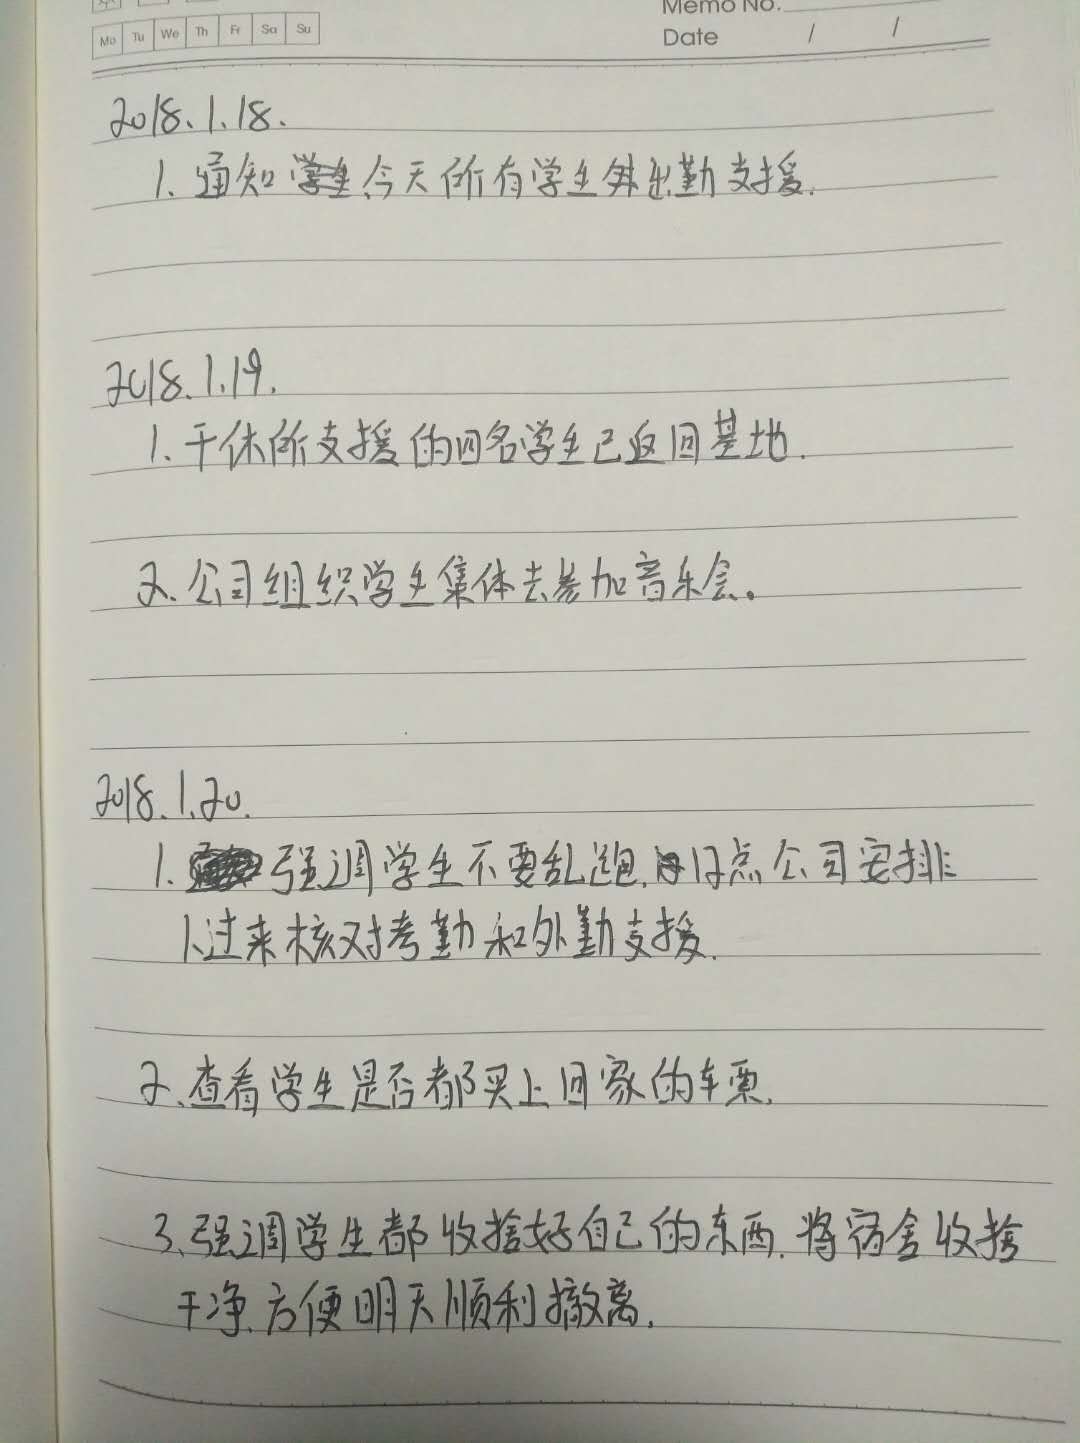 Memo No.
Mo Tu We Th Fr Sa Su
Date / /
2018.1.18.
1. 通知今天所有学生外出勤支援.
2018.1.19.
1. 干休所支援的四名学生已返回基地.
2. 公司组织学生集体去参加音乐会。
2018.1.20.
1. 强调学生不要乱跑, 12点公司安排
人过来核对考勤和外勤支援.
2、查看学生是否都买上回家的车票.
3、强调学生都收拾好自己的东西. 将宿舍收拾
干净. 方便明天顺利撤离.